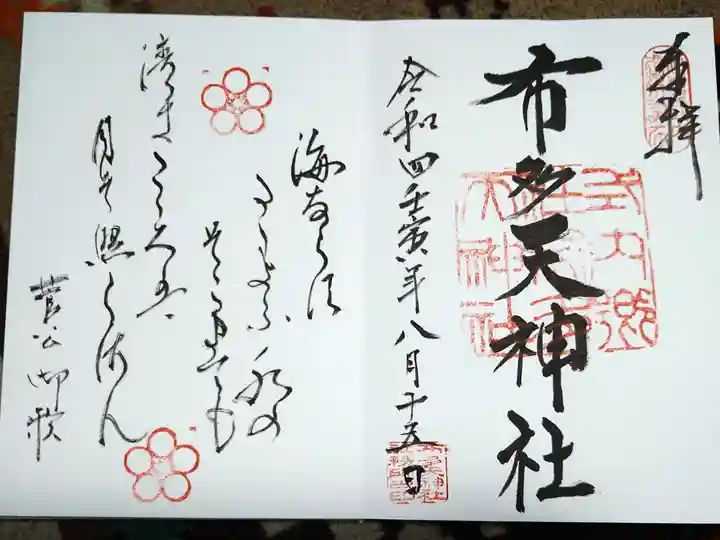 奉拝
布多天神社
式内郷
社布多
天神社
令和四壬寅年八月十五日
海ならす
水の
そこまても
清きこゝろは
月そ照らさん
菅公御歌